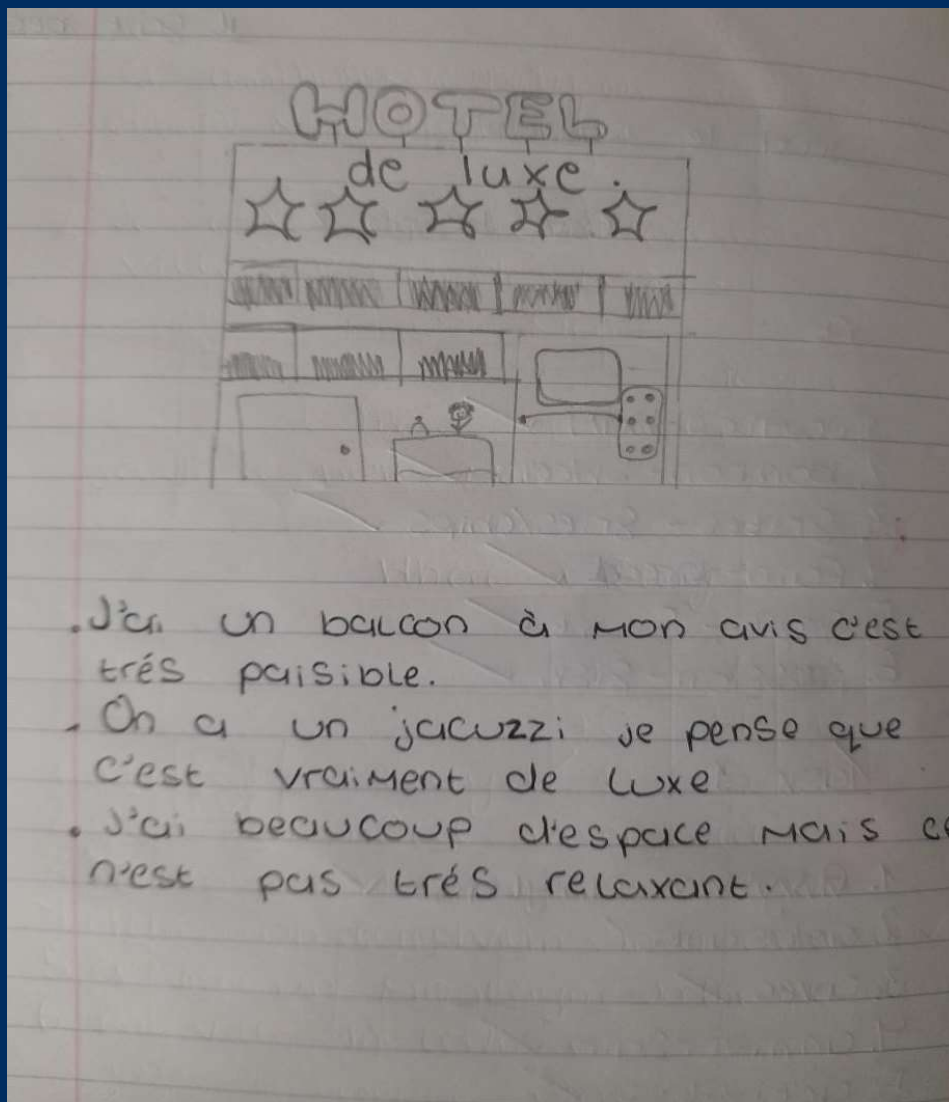 HOTEL
de luxe.
. J'ai un balcon à mon avis c'est
trés paisible.
. On a un jacuzzi je pense que
c'est vraiment de luxe
. J'ai beaucoup d'espace mais ce
n'est pas trés relaxant.